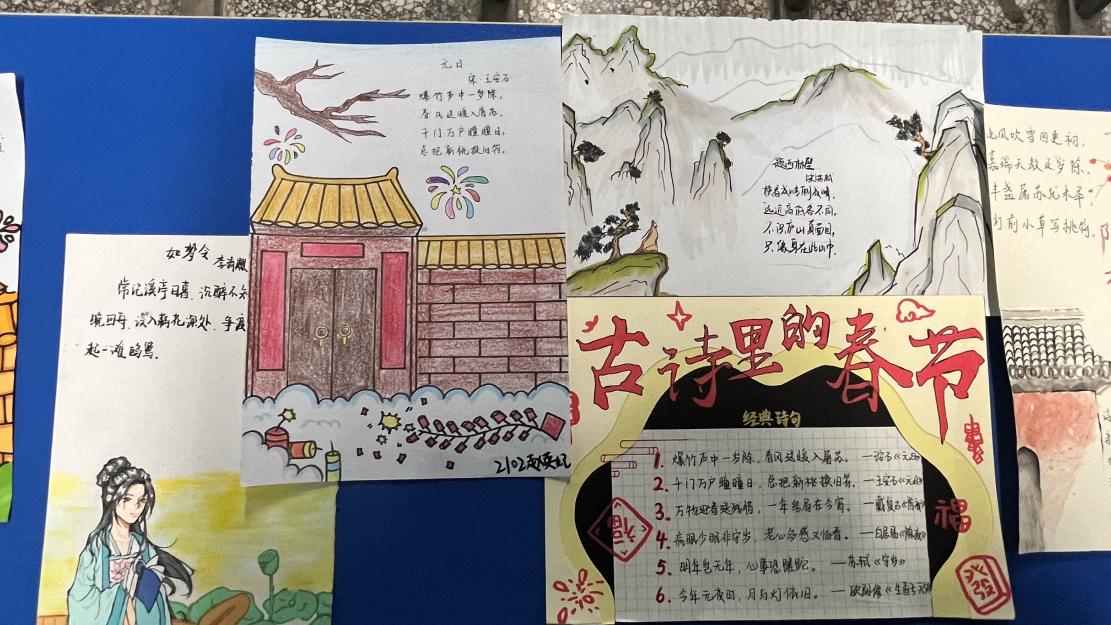 元日
宋·王安石
爆竹声中一岁除,
春风送暖入屠苏。
千门万户曈曈日,
总把新桃换旧符。
2102
题西林壁
宋 苏轼
横看成岭侧成峰,
远近高低各不同。
不识庐山真面目,
只缘身在此山中.
如梦令 李清照
常记溪亭日暮、沉醉不知
晚回舟、误入藕花深处、争渡
起一滩鸥鹭.
古诗里的春节
经典诗句
1. 爆竹声中一岁除,春风送暖入屠苏。
2. 千门万户曈曈日,总把新桃换旧符。 —王安石《元日》
3. 万物迎春送残腊,一年结局在今宵。 —戴复古
4. 病眼少眠非守岁,老心多感又临春。 —白居易
5. 明年岂无年,心事恐蹉跎。 —苏轼《守岁》
6. 今年元夜时,月与灯依旧。 —欧阳修《生查子
福
福
北风吹雪
嘉瑞天教及岁除.
半盏屠苏犹未举
前小草写桃符.